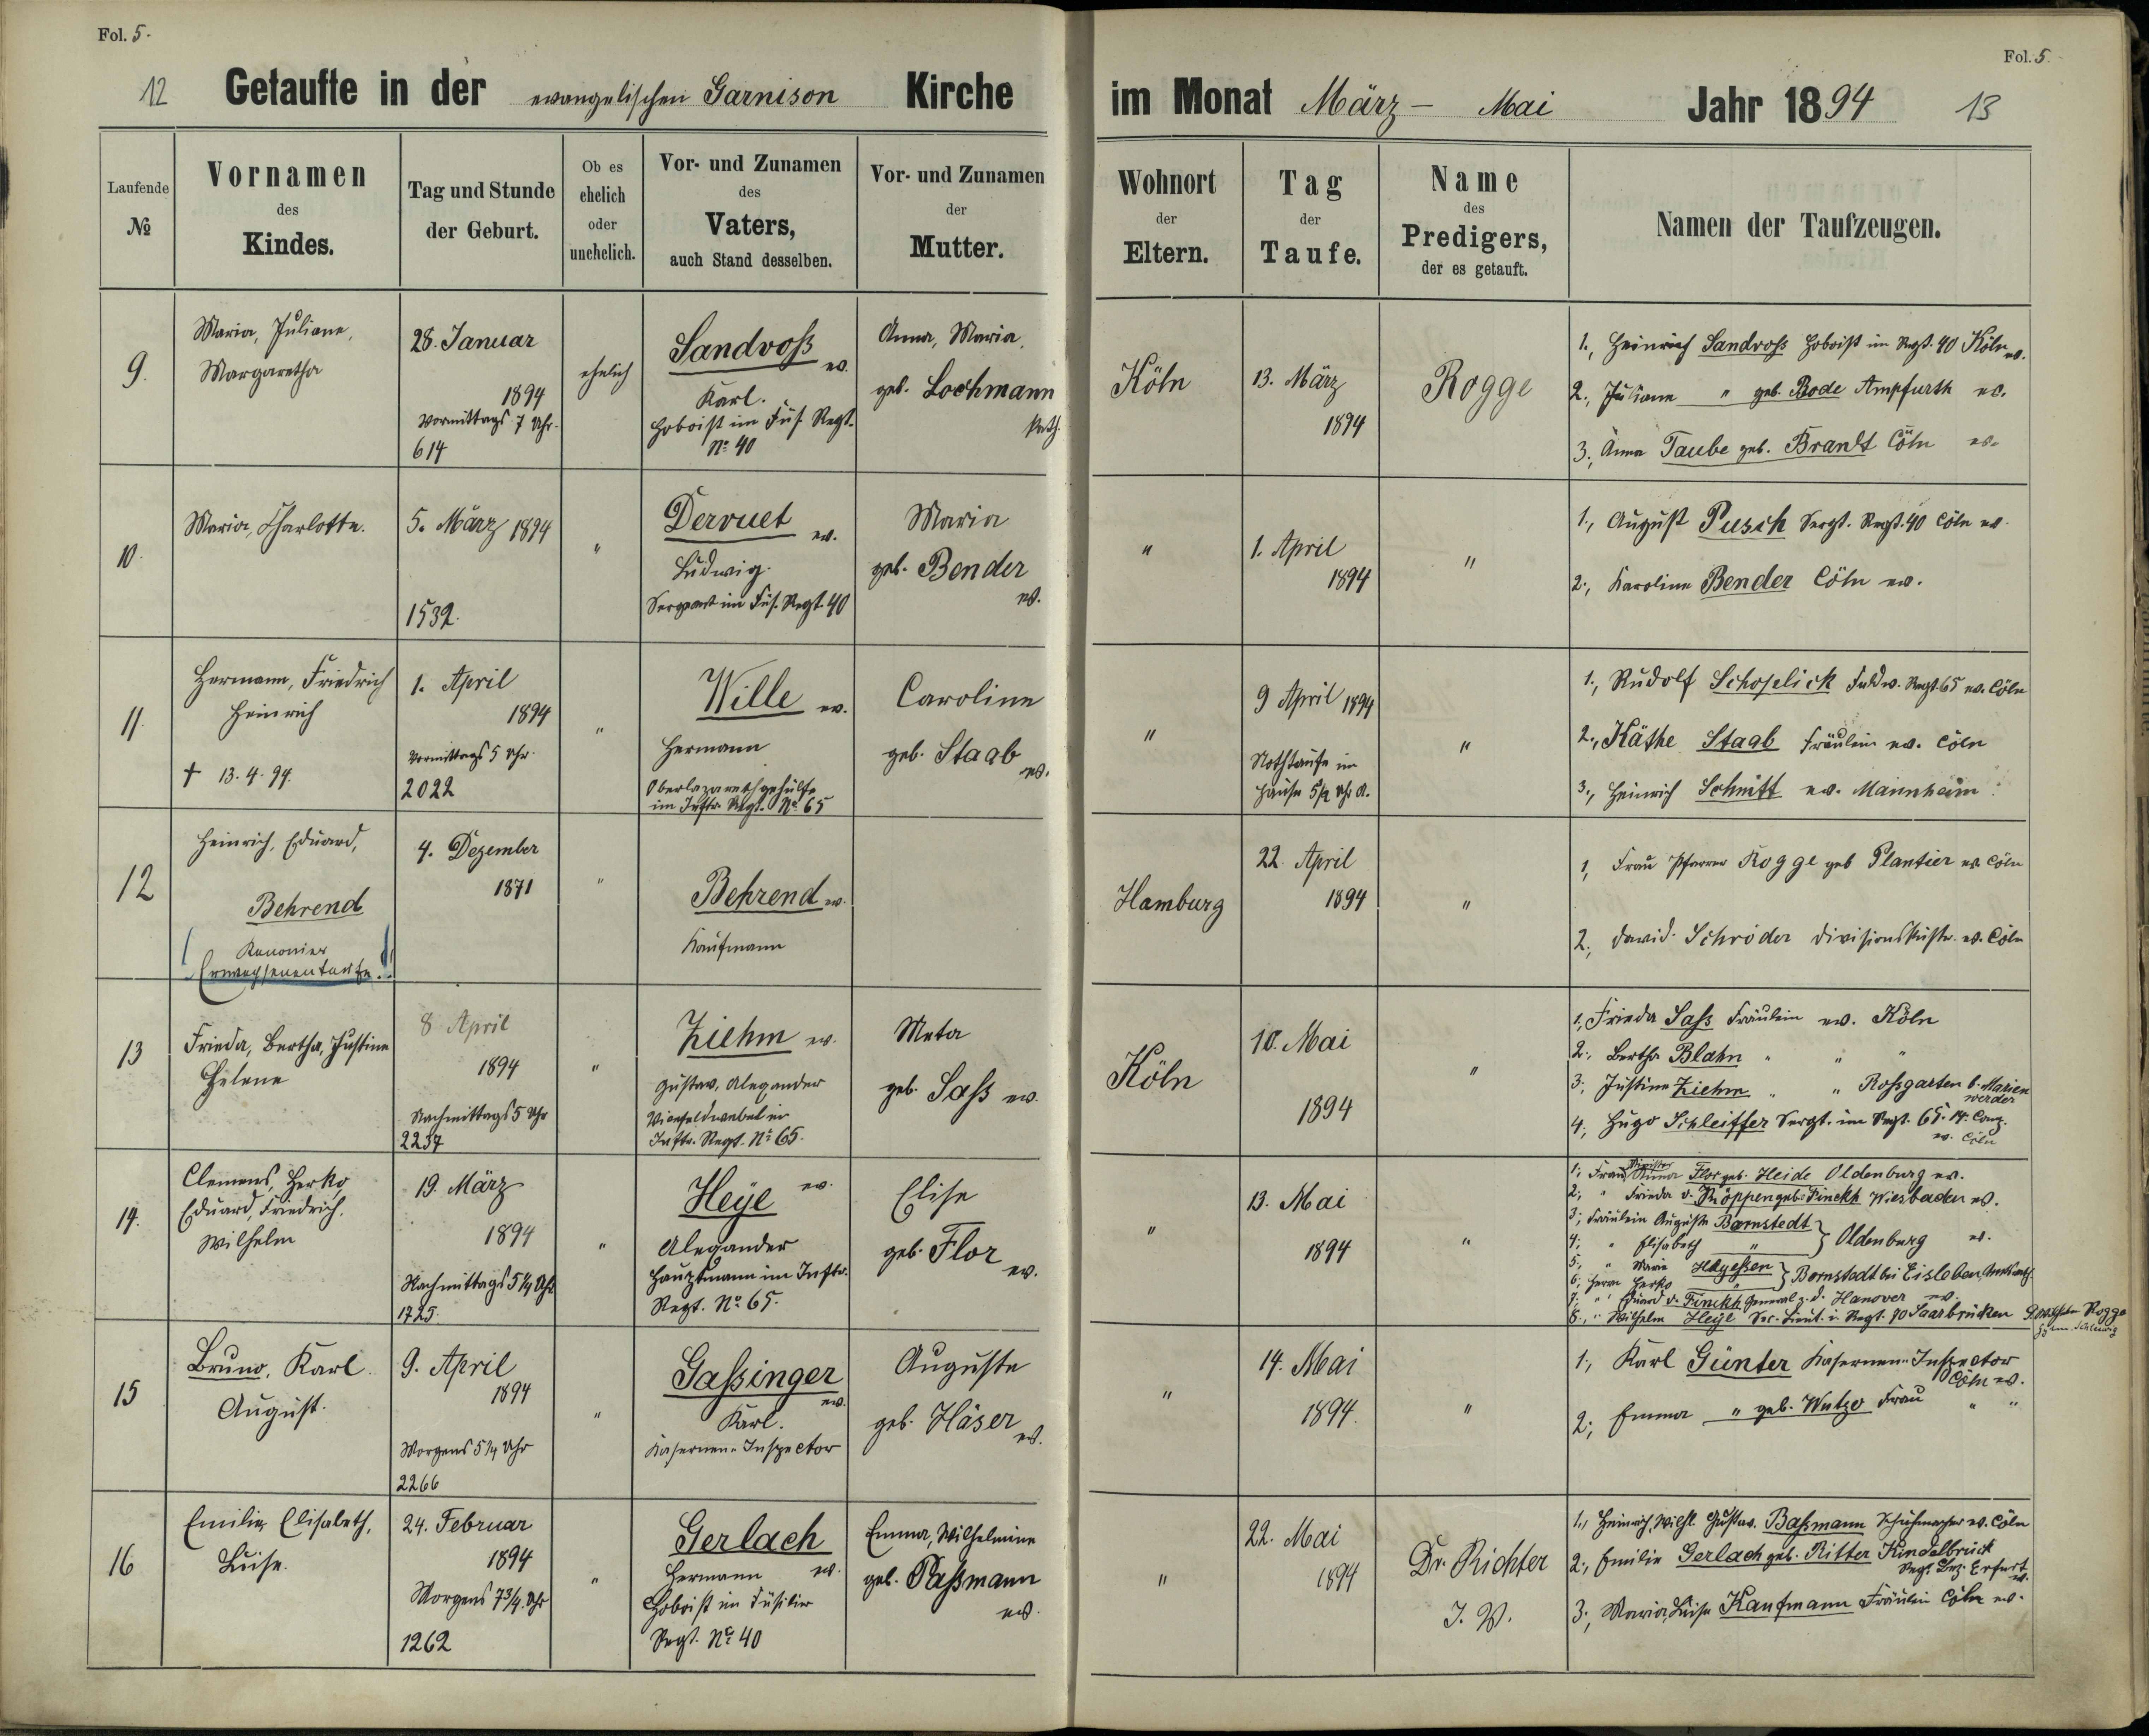 Fol. 5.
12 Getaufte in der evangelischen Garnison Kirche
Laufende № 
Vornamen des Kindes.
Tag und Stunde der Geburt.
Ob es ehelich oder unehelich.
Vor- und Zunamen des Vaters, auch Stand desselben.
Vor- und Zunamen der Mutter.
9.
Maria, Juliane,
Margaretha
28. Januar
1894
Vormittags 7 Uhr.
614
ehelich
Sandvoß ev.
Karl.
Hoboist im Füs. Regt.
No 40
Anna, Maria,
geb. Lochmann
kath.
10.
Maria, Charlotte.
5. März 1894
1532.
"
Dervuet ev.
Ludwig.
Sergeant im Füs. Regt. 40
Maria
geb. Bender
ev.
11.
Hermann, Friedrich
Heinrich
† 13.4.94.
1. April
1894
Vormittags 5 Uhr.
2022
"
Wille ev.
Hermann
Oberlazarethgehülfe
im Inftr. Regt. No 65
Caroline
geb. Staab
ev.
12
Heinrich, Eduard,
Behrend
Kanonier
(Erwachsenentaufe.)
4. Dezember
1871
"
Behrend ev.
Kaufmann
13
Frieda, Bertha, Justine
Helene
8 April
1894
Nachmittags 5 Uhr
2237
"
Ziehm ev.
Gustav, Alexander
Vicefeldwebel im
Inftr. Regt. No 65.
Meta
geb. Saß ev.
14.
Clemens, Herko
Eduard, Friedrich,
Wilhelm
19. März
1894
Nachmittags 5 1/4 Uhr
1725.
"
Heye ev.
Alexander
Hauptmann im Inftr.
Regt. No 65.
Elise
geb. Flor
ev.
15
Bruno, Karl
August.
9. April
1894
Morgens 5 1/4 Uhr
2266
"
Gaßinger
ev.
Karl.
Kasernen-Inspector
Auguste
geb. Häser
ev.
16
Emilie, Elisabeth,
Luise.
24. Februar
1894
Morgens 7 3/4 Uhr
1262
"
Gerlach
Hermann ev.
Hoboist im Füsilier
Regt. No 40
Emma, Wilhelmine
geb. Paßmann
ev.
Fol. 5.
im Monat März - Mai Jahr 1894 13
Wohnort der Eltern.
Tag der Taufe.
Name des Predigers, der es getauft.
Namen der Taufzeugen.
Köln
13. März
1894
Rogge
1., Heinrich Sandvoß Hoboist im Regt. 40 Köln ev.
2., Juliane " geb. Bode Ampfurth ev.
3., Anna Taube geb. Brandt Cöln ev.
"
1. April
1894
"
1., August Pusch Sergt. Regt. 40 Cöln ev.
2., Karoline Bender Cöln ev.
"
9 April 1894
Nothtaufe im
Hause
"
1., Rudolf Schoflick Feldw. Regt. 65 ev. Cöln
2., Käthe Staab Fräulein ev. Cöln
3., Heinrich Schmitt ev. Mannheim
Hamburg
22. April
1894
"
1, Frau Pfarrer Rogge geb Plantier ev. Cöln
2, David Schröder Divisionsküster ev. Cöln
Köln
10. Mai
1894
"
1., Frieda Saß Fräulein ev. Köln
2., Bertha Blahn " " "
3., Justine Ziehm " " Roßgarten b. Marien
werder
4., Hugo Schleiffer Sergt. im Regt. 65. 14. Comp.
ev. Cöln
"
13. Mai
1894
"
1., Frau Minister Anna Flor geb. Heide Oldenburg ev.
2., " Frieda v. Köppen geb. Finckh Wiesbaden ev.
3., Fräulein Auguste Barnstedt
4., " Elisabeth " } Oldenburg ev.
5., " Marie Heyeßen
6., Herrn Herko " } Bornstedt bei Eisleben
7., " Eduard v. Finckh General z. D. Hanover ev.
8., " Wilhelm Heye Sec. Lieut. i. Regt. 70 Saarbrücken 9. Wilhelm Rogge
Schleswig
"
14. Mai
1894.
"
1., Karl Günter Kasernen-Inspector
Cöln ev.
2., Emma " geb. Wutzo Frau " "
"
22. Mai
1894
Dr. Richter
I. V.
1., Heinrich, Wilh. Gustav. Baßmann Schuhmacher ev. Cöln
2., Emilie Gerlach geb. Ritter Kindelbrück
Regt. Bez. Erfurt
ev.
3., Maria, Luise Kaufmann Fräulein Cöln ev.